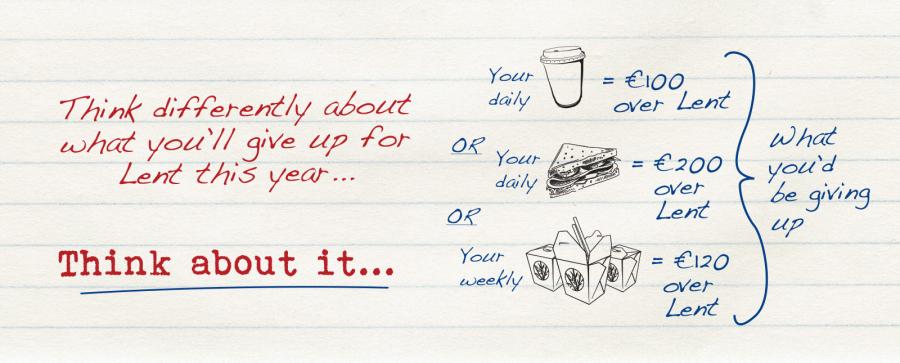 Think differently about
what you'll give up for
Lent this year...
Think about it...
Your
daily
= €100
over Lent
OR
Your
daily
= €200
over
Lent
OR
Your
weekly
= €120
over
Lent
What
you'd
be giving
up